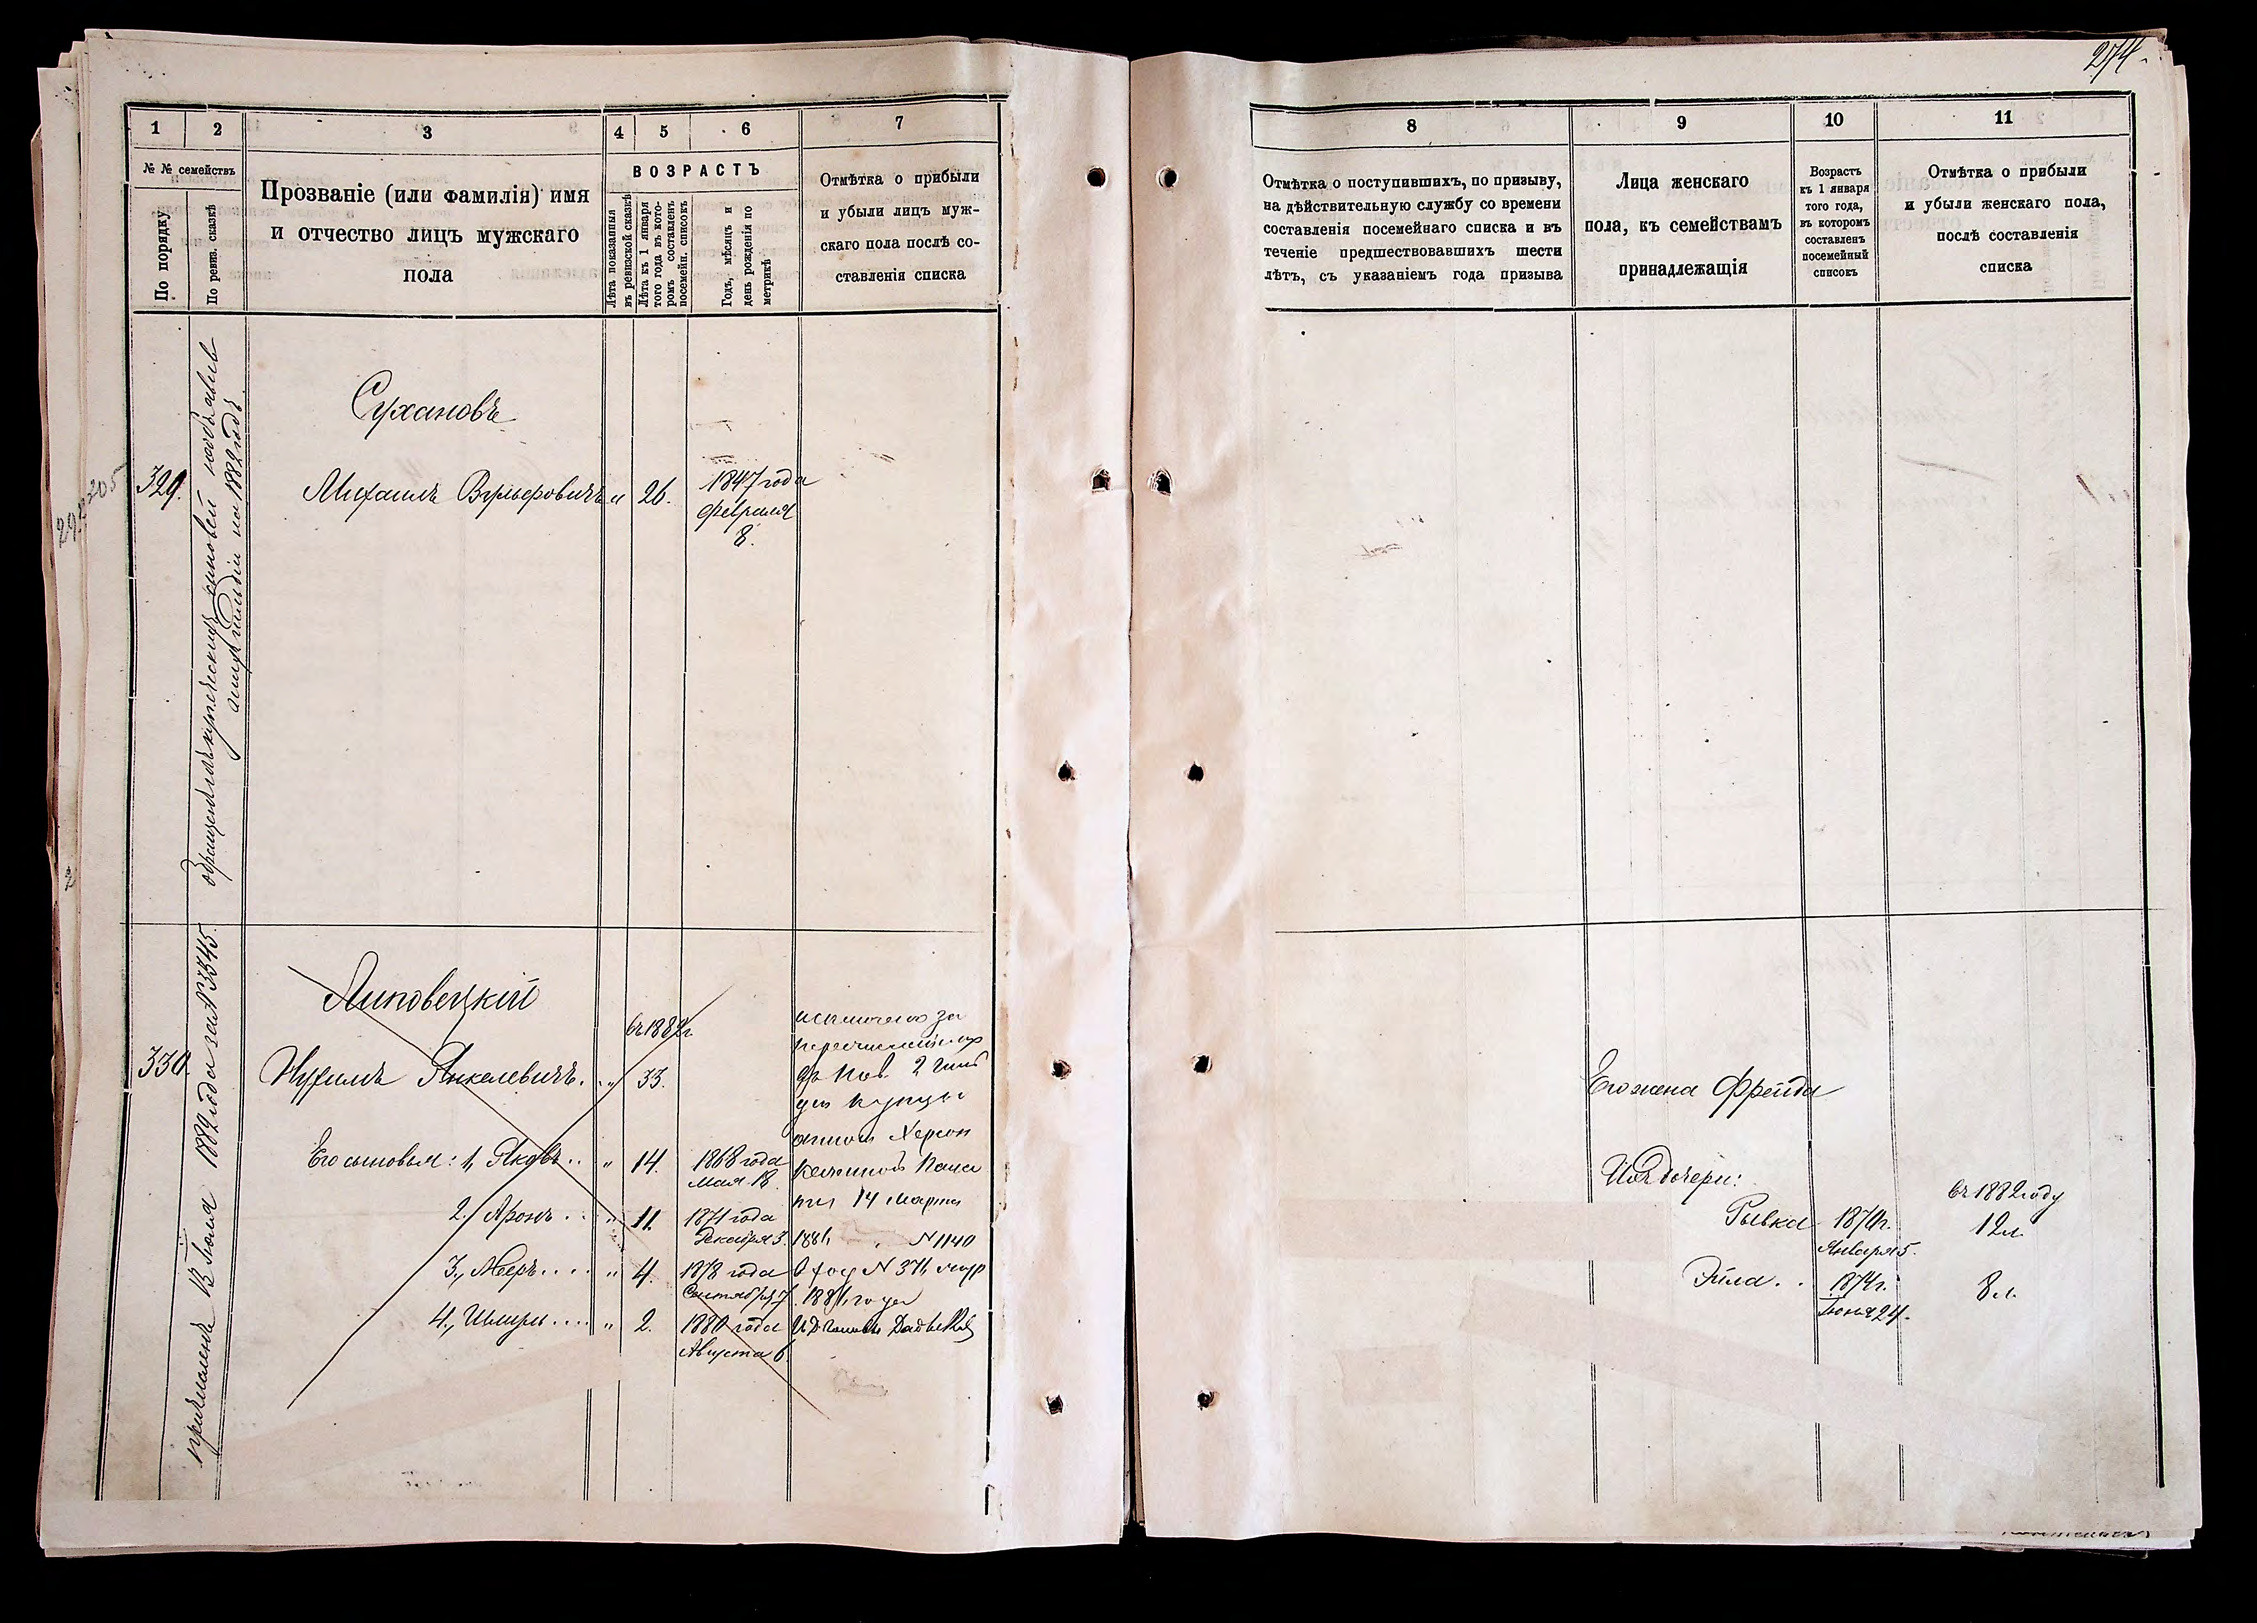 274.
1 2 3 4 5 6 7
№ № семействъ
По порядку
По ревиз. сказкѣ
Прозваніе (или фамилія) имя
и отчество лицъ мужскаго
пола
ВОЗРАСТЪ
Лѣта показанныя
въ ревизской сказкѣ
Лѣта къ 1 января
того года въ кото-
ромъ составленъ
посемейн. списокъ
Годъ, мѣсяцъ и
день рожденія по
метрикѣ
Отмѣтка о прибыли
и убыли лицъ муж-
скаго пола послѣ со-
ставленія списка
329.
на 1882 годъ
Сухановъ
Михаилъ Вульфовичъ " 26. 1847 года
февраля
8.
330.
причисленъ 13 Іюля 1882 года за № 3345.
Липовецкій
въ 1882 г
Нухимъ Янкелевичъ. " 33.
Его сыновья: 1, Яковъ.. " 14. 1868 года
Мая 18.
2, Аронъ... " 11. 1871 года
Декабря 3.
3., Мееръ.... " 4. 1878 года
Сентября 7.
4., Шмиль.... " 2. 1880 года
Августа 6.
2 гиль
діи купцы
Херсон
казенной Пала
ты 14 марта
188 № 1140
№ 371
8 9 10 11
Отмѣтка о поступившихъ, по призыву,
на дѣйствительную службу со времени
составленія посемейнаго списка и въ
теченіе предшествовавшихъ шести
лѣтъ, съ указаніемъ года призыва
Лица женскаго
пола, къ семействамъ
принадлежащія
Возрастъ
къ 1 января
того года,
въ которомъ
составленъ
посемейный
списокъ
Отмѣтка о прибыли
и убыли женскаго пола,
послѣ составленія
списка
Его жена Фрейда
Ихъ дочери:
въ 1882 году
Рывка 1870 г. 12 л.
Января 5.
Эйла.. 1874 г. 8 л.
Іюня 24.